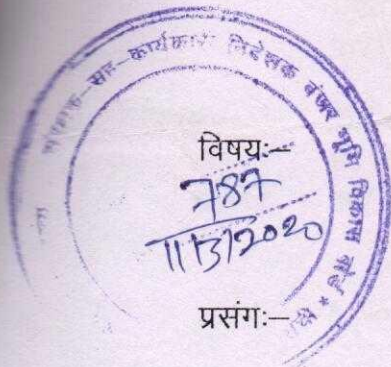 सह-कार्यकारी निदेशक बंजर भूमि विकास बोर्ड *
विषय:-
787
11/3/2020
प्रसंग:-